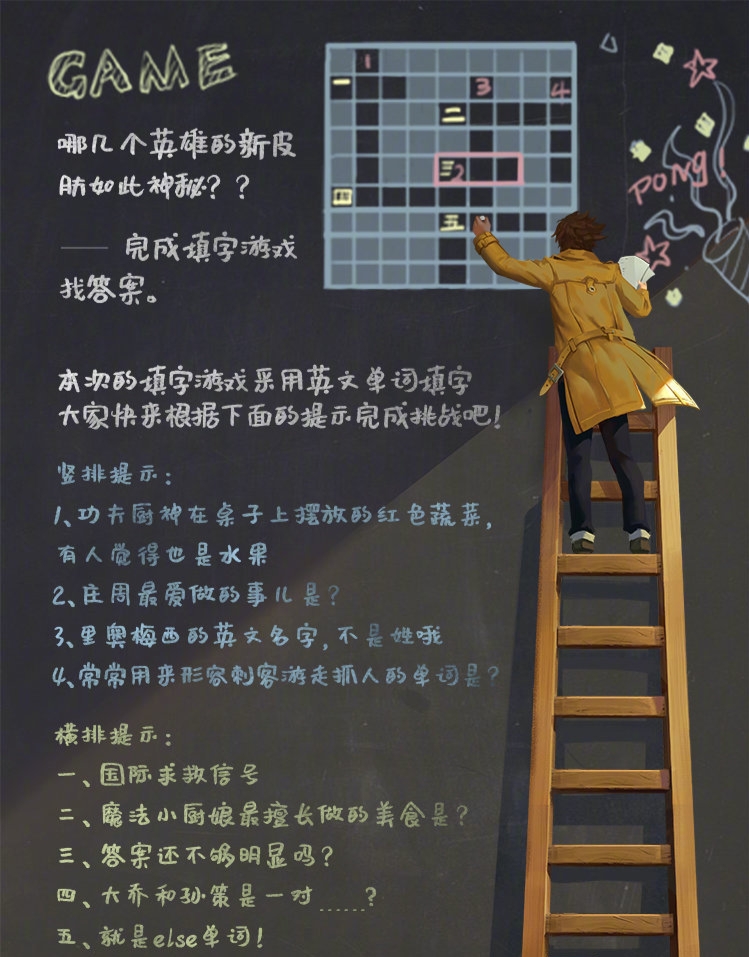 GAME
哪几个英雄的新皮
肤如此神秘？？
—— 完成填字游戏
找答案。
1
一
3
4
二
三2
四
五
PONG!
本次的填字游戏采用英文单词填字
大家快来根据下面的提示完成挑战吧！
竖排提示：
1、功夫厨神在桌子上摆放的红色蔬菜，
有人觉得也是水果
2、庄周最爱做的事儿是？
3、里奥梅西的英文名字，不是姓哦
4、常常用来形容刺客游走抓人的单词是？
横排提示：
一、国际求救信号
二、魔法小厨娘最擅长做的美食是？
三、答案还不够明显吗？
四、大乔和孙策是一对......？
五、就是else单词！